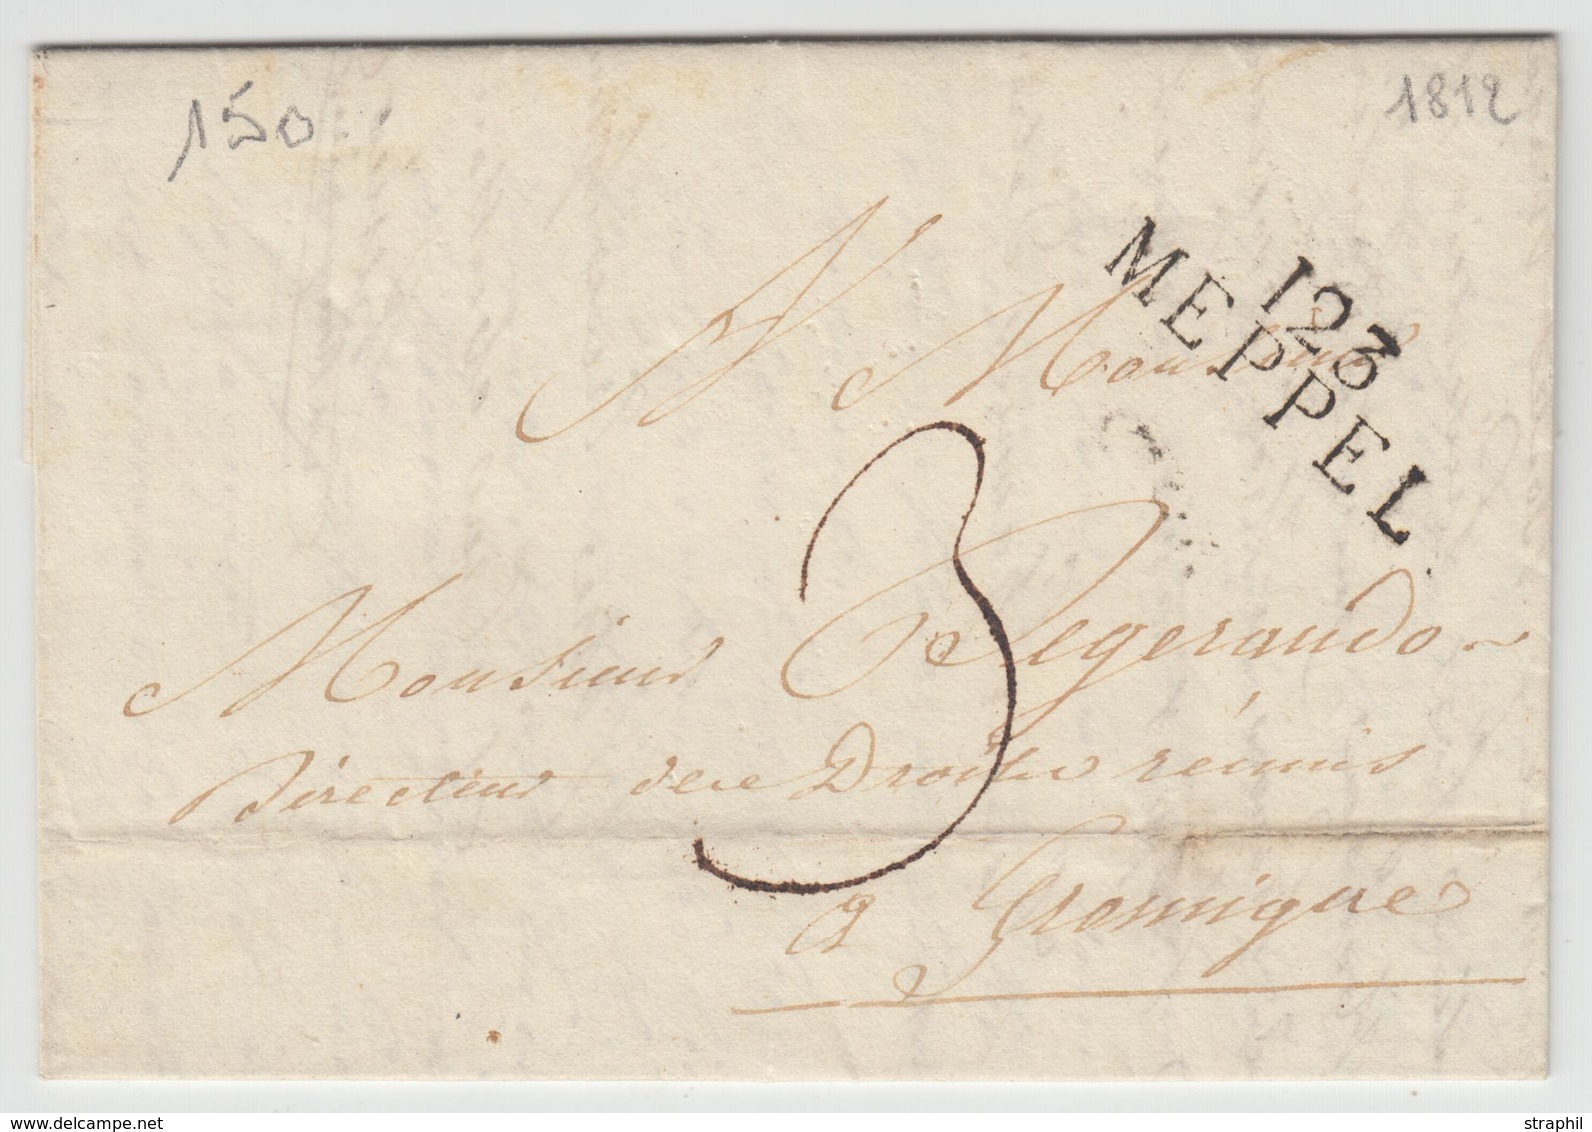 150
1812
123
MEPPEL
A Monsieur
3
Monsieur Degerando
Directeur des Droits réunis
a Gronigue
delcampe.net
straphil